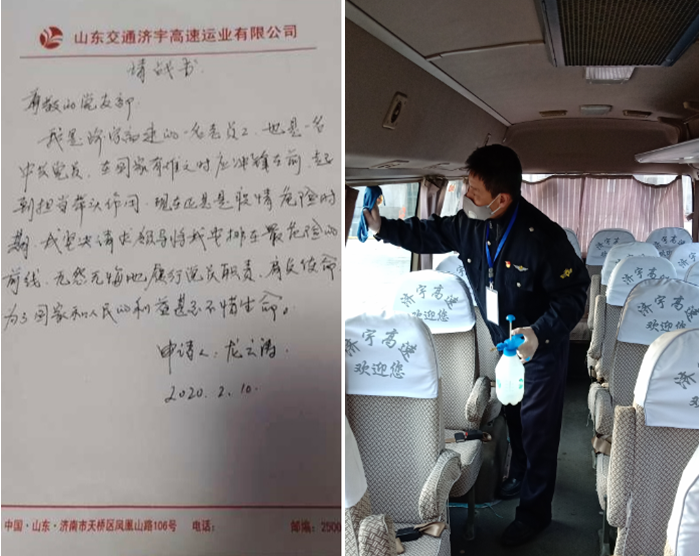 山东交通济宇高速运业有限公司
请战书
尊敬的党支部
我是济宇高速的一名老员工、也是一名
中共党员，在国家有难之时应冲锋在前，起
到担当带头作用。现在正是是疫情危险时
期，我坚决请求领导将我安排在最危险的
前线，无怨无悔地履行党员职责，肩负使命
为了国家和人民的利益甚至不惜生命。
申请人：龙云涛
2020.2.10.
中国·山东·济南市天桥区凤凰山路106号 电话： 邮编：2500
济宇高速
欢迎您
济宇高速
欢迎您
济宇高速
欢迎您
济宇高速
欢迎您